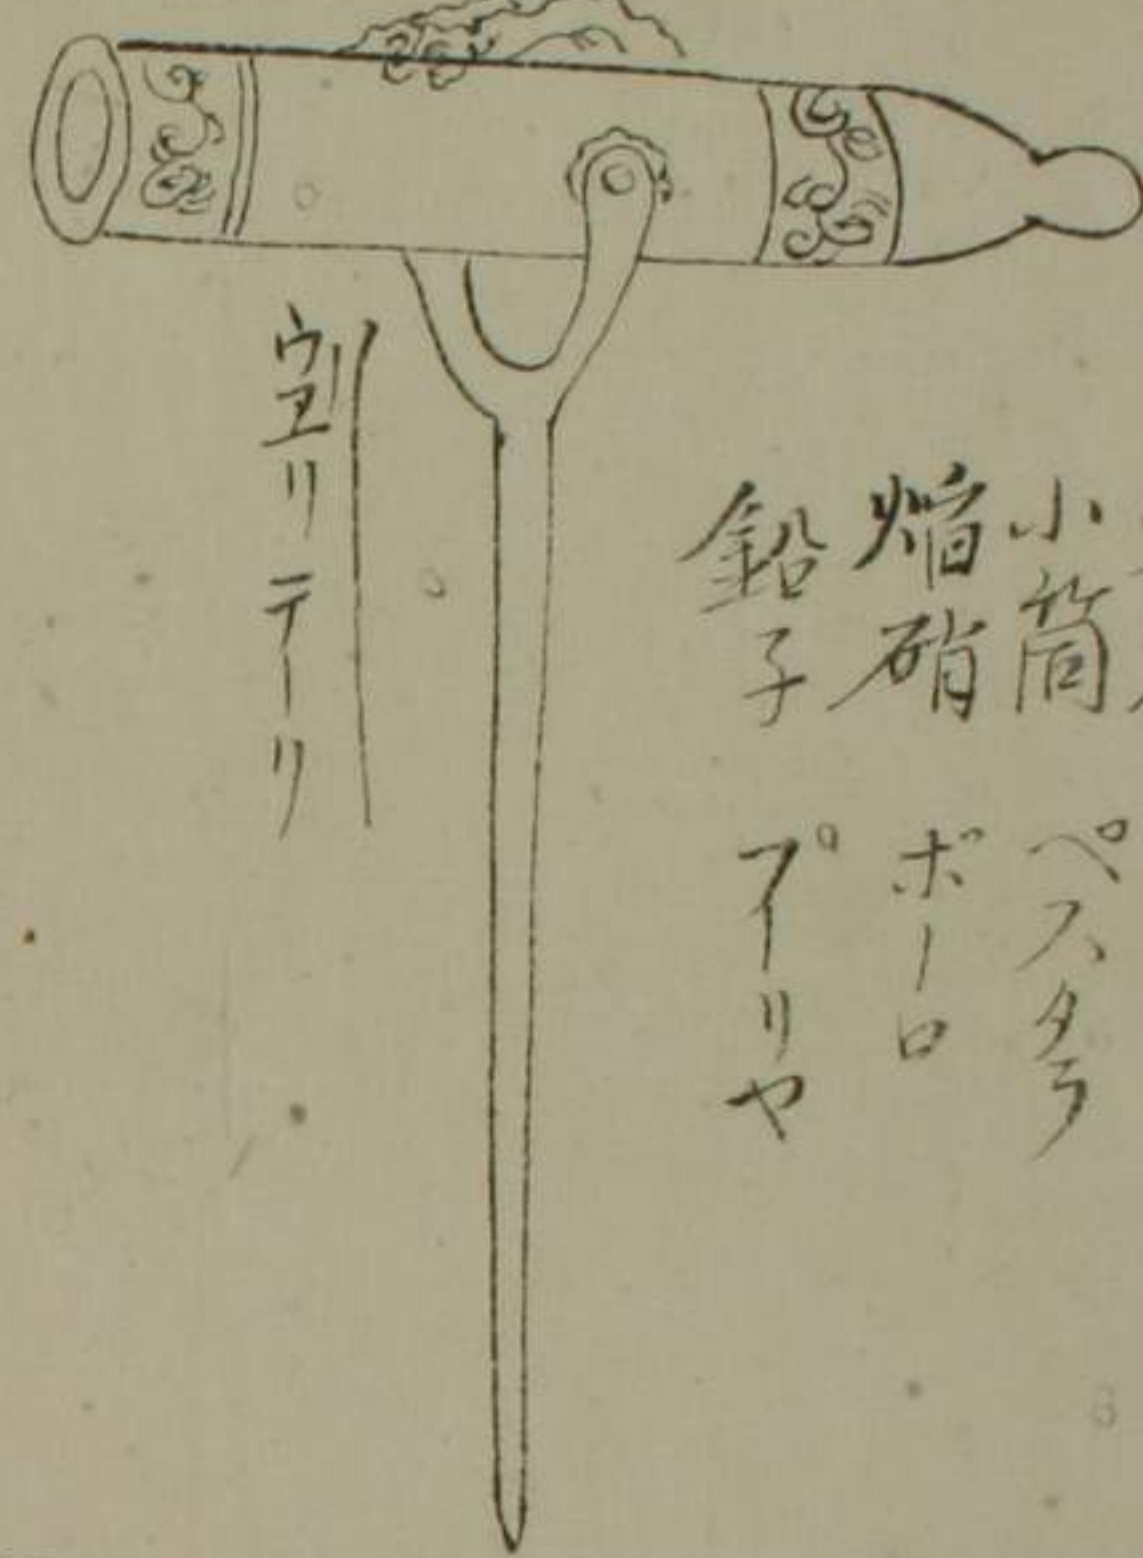 小筒　ペスタラ
焔硝　ボーロ
鉛子　プーリヤ
ウヱリテーリ